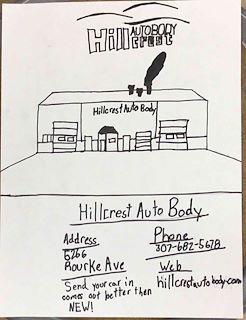 Hillcrest AUTOBODY
Hillcrest Auto Body
Hillcrest Auto Body
Address
5266
Rourke Ave
Phone
307-682-5678
Send your car in
comes out better then
NEW!
Web
hillcrestautobody.com